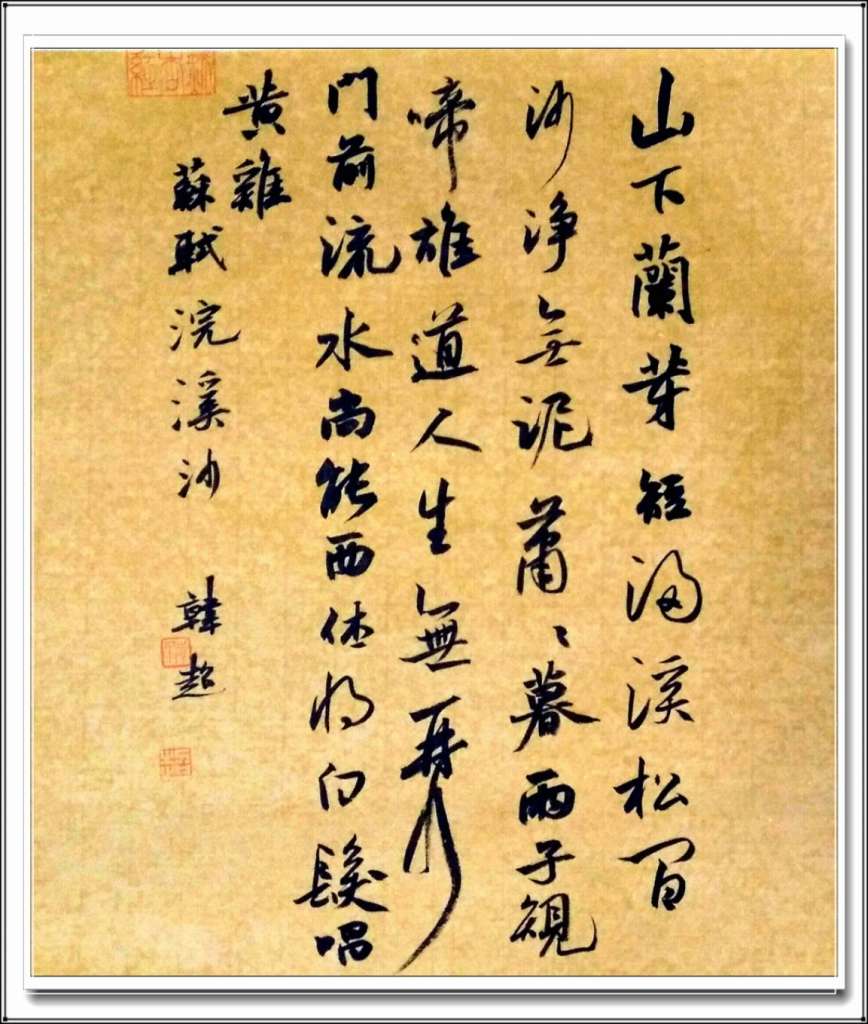 山下蘭芽短浸溪松間
沙淨無泥蕭〻暮雨子規
啼誰道人生無再少
門前流水尚能西休將白髮唱
黃雞
蘇軾浣溪沙 韓超